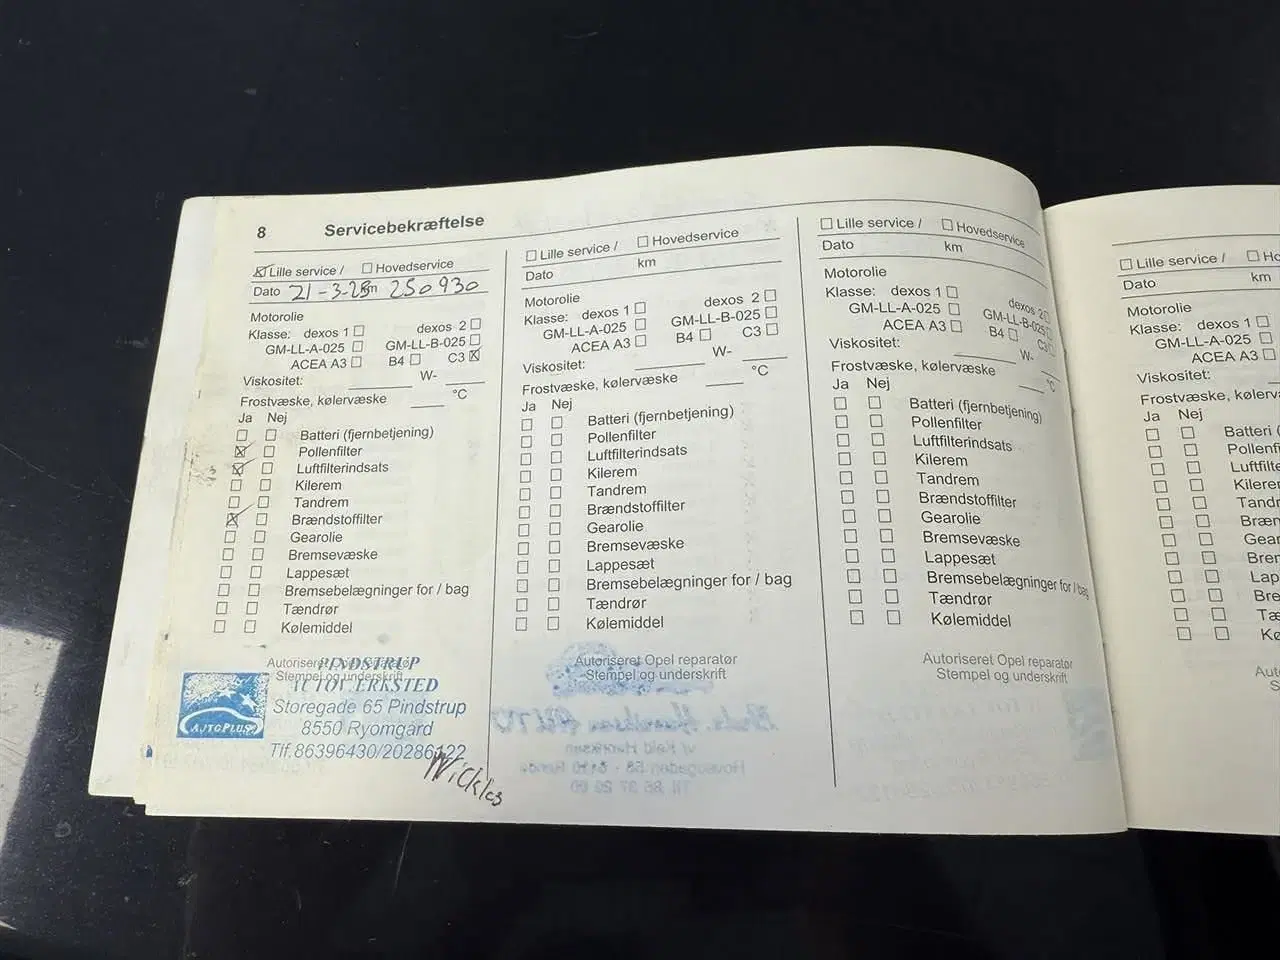 8 Servicebekræftelse
Lille service / Hovedservice
Dato 21-3-25 km 250930
Motorolie
Klasse: dexos 1 dexos 2
GM-LL-A-025 GM-LL-B-025
ACEA A3 B4 C3
Viskositet: W-
Frostvæske, kølervæske °C
Ja Nej
Batteri (fjernbetjening)
Pollenfilter
Luftfilterindsats
Kilerem
Tandrem
Brændstoffilter
Gearolie
Bremsevæske
Lappesæt
Bremsebelægninger for / bag
Tændrør
Kølemiddel
Autoriseret Opel reparatør
Stempel og underskrift
PINDSTRUP
AUTOVÆRKSTED
Storegade 65 Pindstrup
8550 Ryomgard
Tlf. 86396430/20286122
AUTOPLUS
Lille service / Hovedservice
Dato km
Motorolie
Klasse: dexos 1 dexos 2
GM-LL-A-025 GM-LL-B-025
ACEA A3 B4 C3
Viskositet: W-
Frostvæske, kølervæske °C
Ja Nej
Batteri (fjernbetjening)
Pollenfilter
Luftfilterindsats
Kilerem
Tandrem
Brændstoffilter
Gearolie
Bremsevæske
Lappesæt
Bremsebelægninger for / bag
Tændrør
Kølemiddel
Autoriseret Opel reparatør
Stempel og underskrift
Lille service / Hovedservice
Dato km
Motorolie
Klasse: dexos 1 dexos 2
GM-LL-A-025 GM-LL-B-025
ACEA A3 B4 C3
Viskositet: W-
Frostvæske, kølervæske °C
Ja Nej
Batteri (fjernbetjening)
Pollenfilter
Luftfilterindsats
Kilerem
Tandrem
Brændstoffilter
Gearolie
Bremsevæske
Lappesæt
Bremsebelægninger for / bag
Tændrør
Kølemiddel
Autoriseret Opel reparatør
Stempel og underskrift
Lille service / Ho
Dato km
Motorolie
Klasse: dexos 1
GM-LL-A-025
ACEA A3
Viskositet:
Frostvæske, kølerv
Ja Nej
Batteri (
Pollenf
Luftfilte
Kilere
Tandr
Bræn
Gear
Brem
Lap
Bre
Tæ
Kø